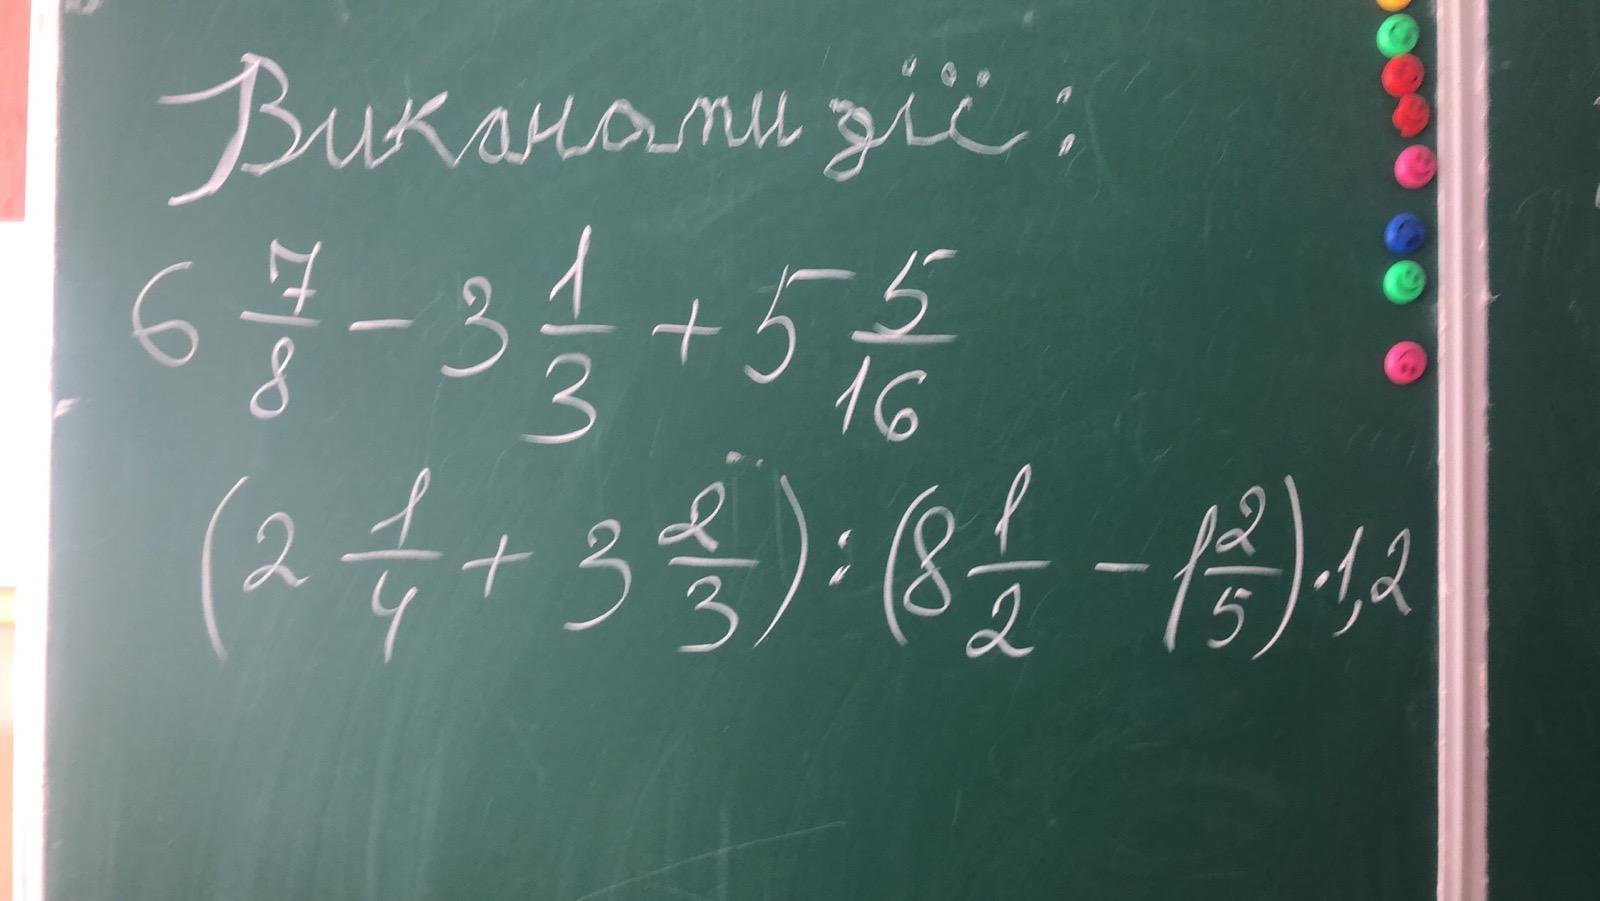 Виконати дії:
6 7/8 - 3 1/3 + 5 5/16
(2 1/4 + 3 2/3) : (8 1/2 - 1 2/5) · 1,2